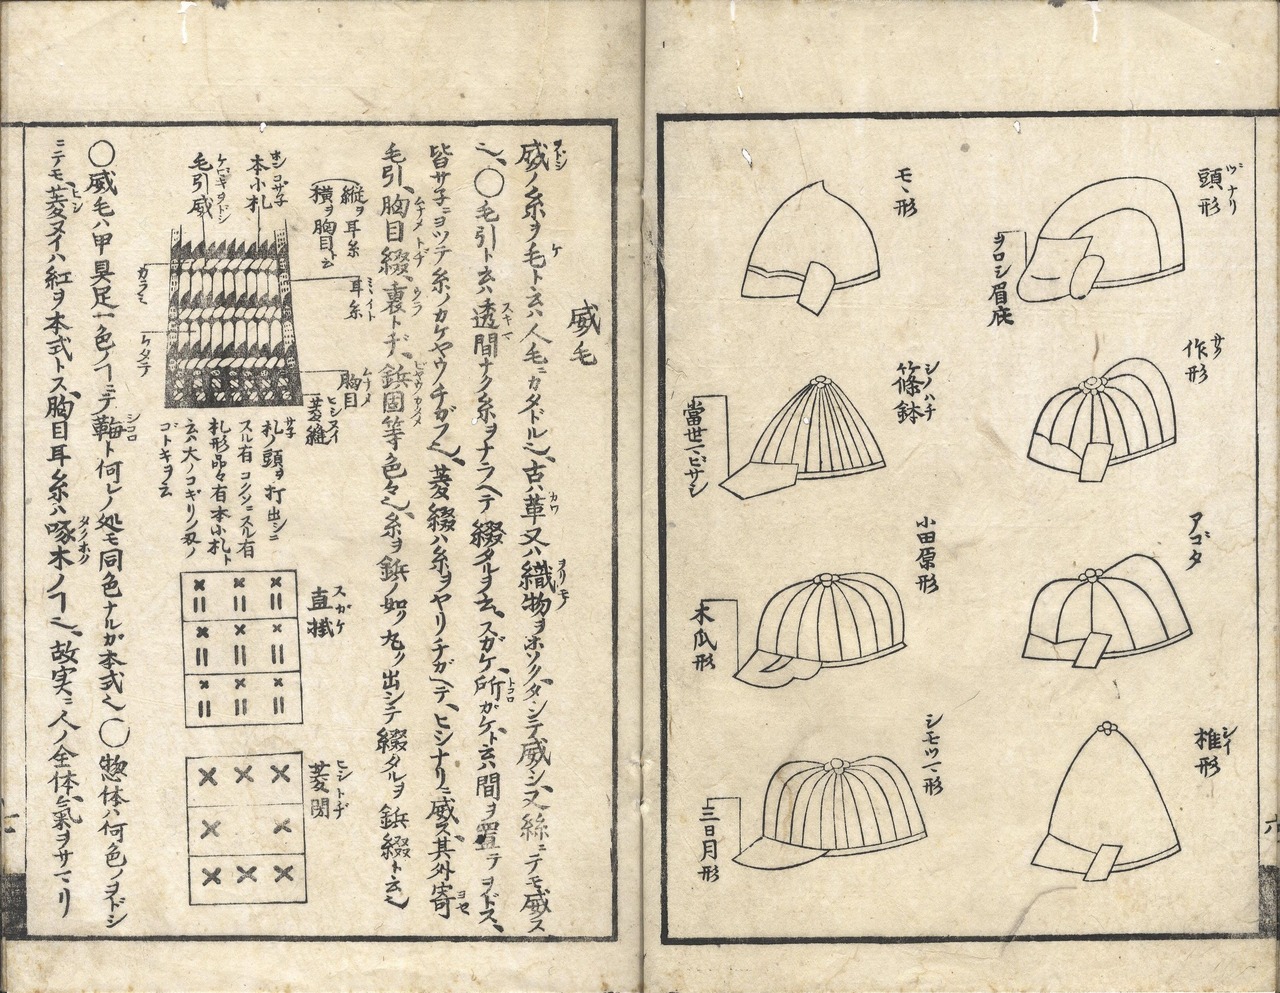 頭形
ヅナリ
ヲロシ眉庇
作形
サク
アゴタ
椎形
シイ
モヽ形
篠鉢
シノハチ
當世マビサシ
小田原形
木瓜形
シモツマ形
三日月形
六
威毛
威ノ糸ヲ毛ト云ハ人毛ニカタドル也、古ハ革又ハ織物ヲホソクタヽミテ威シ又絲ニテモ威ス
也、〇毛引ト云ハ透間ナク糸ヲナラヘテ綴タルヲ云、スガケ、所ガケト云ハ間ヲ置テヲドス、
皆サ子ニヨツテ糸ノカケヤウチガフ也、菱綴ハ糸ヲヤリチガヘテ、ヒシナリニ威ス、其外寄
毛引、胸目綴、裏トヂ、鋲固等色々也、糸ヲ鋲ノ如ク丸ク出シテ綴タルヲ鋲綴ト云也
縦ヲ耳糸
横ヲ胸目ト云
本小札
ホンコザ子
毛引威
ケビキヲドシ
カラミ
ケタテ
耳糸
ミヽイト
胸目
ムナメ
菱縫
ヒシヌイ
札ノ頭ヲ打出シニ
スル有コクソニスル有
札形品々有本小札ト
云ハ大ノコギリノ刄ノ
ゴトキヲ云
直掛
スガケ
菱閉
ヒシトヂ
〇威毛ハ甲具足一色ノヿニテ鞠ト何レノ処モ同色ナルガ本式也〇惣体ハ何色ノヲドシ
ニテモ、菱ヌイハ紅ヲ本式トス、胸目耳糸ハ啄木ノヿ也、故実ニ人ノ全体氣ヲサマリ
七